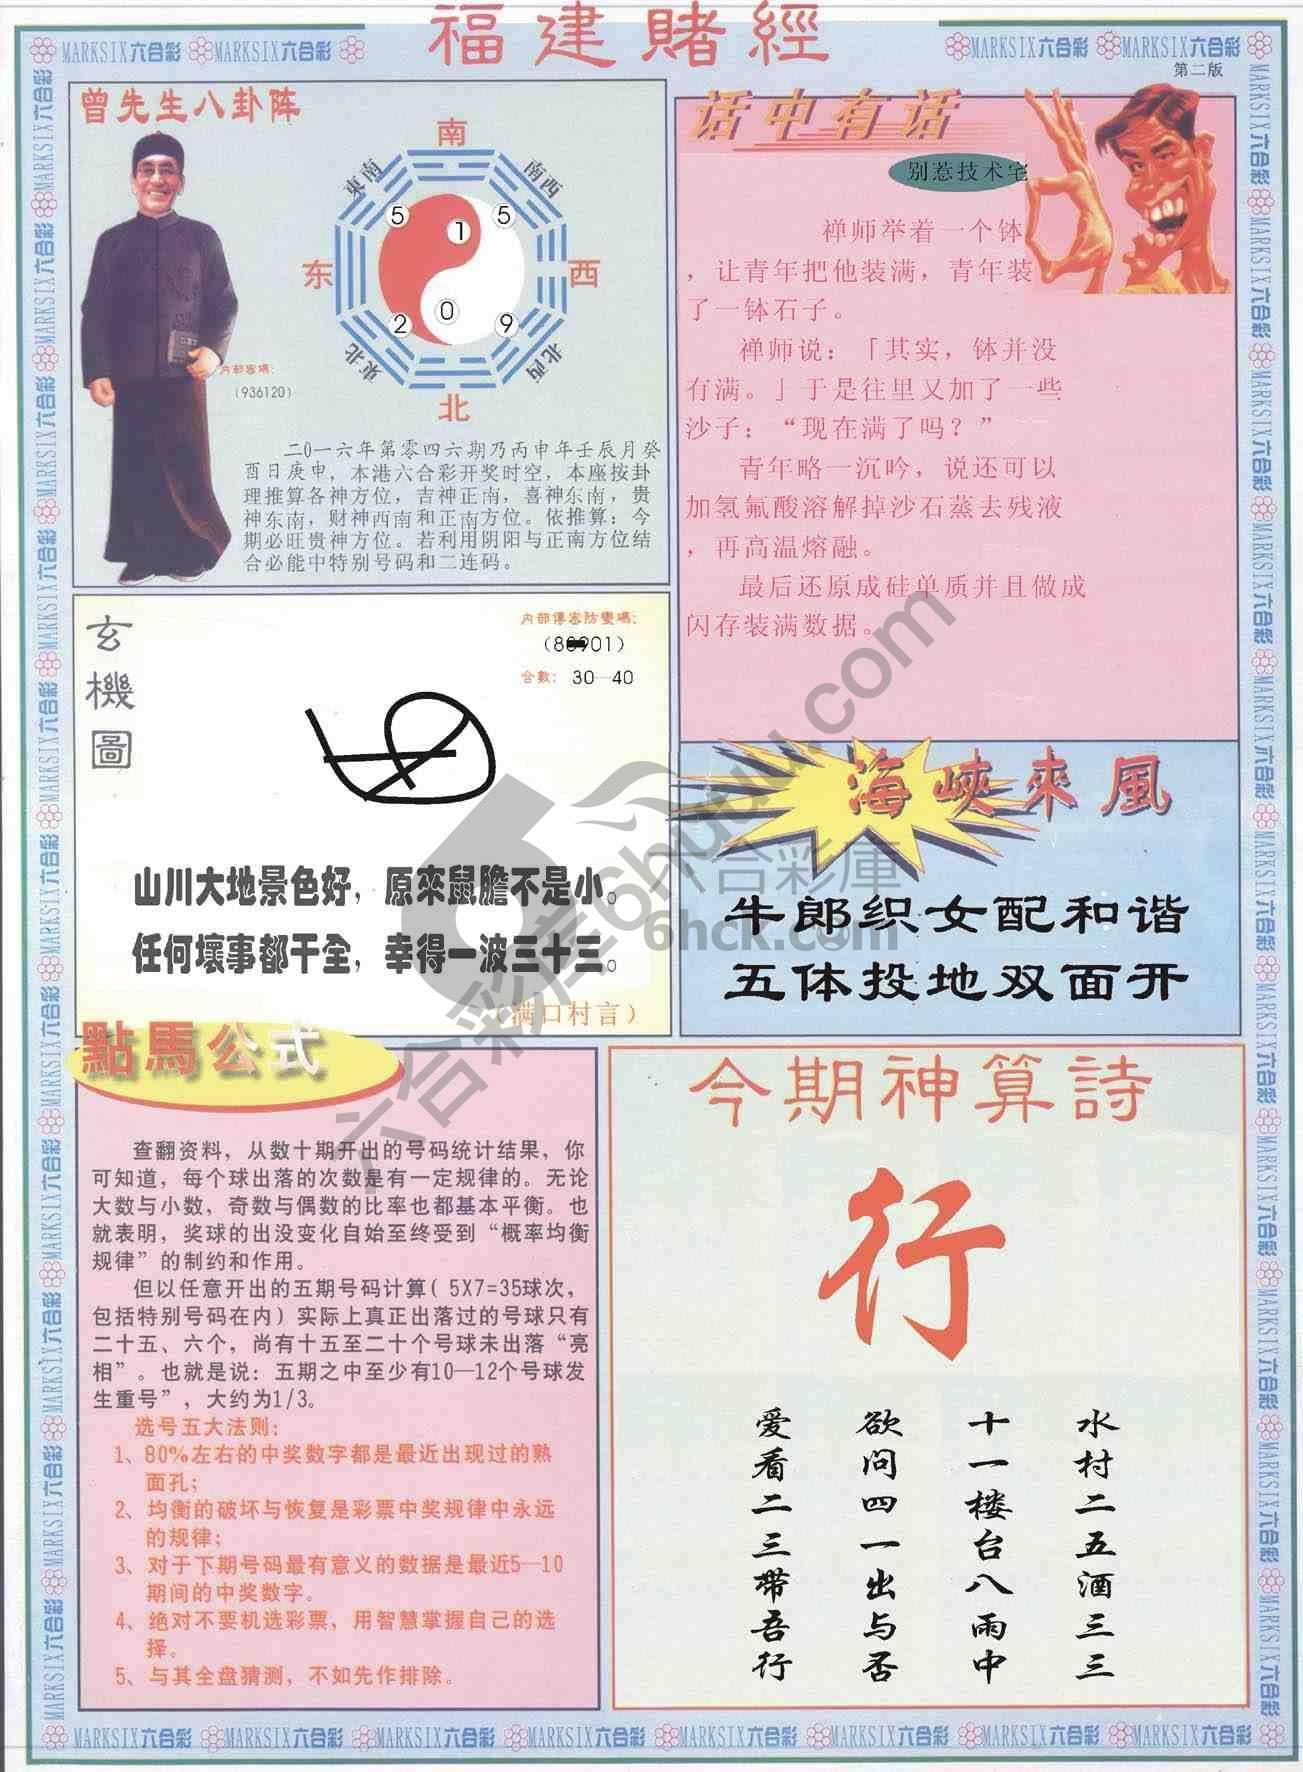 福建賭經
MARKSIX六合彩 MARKSIX六合彩
MARKSIX六合彩 MARKSIX六合彩
第二版
曾先生八卦阵
南
東南
南西
5
1
5
东
西
2
0
9
東北
北西
北
内部密碼：
(936120)
二0一六年第零四六期乃丙申年壬辰月癸
酉日庚申，本港六合彩开奖时空，本座按卦
理推算各神方位，吉神正南，喜神东南，贵
神东南，财神西南和正南方位。依推算：今
期必旺贵神方位。若利用阴阳与正南方位结
合必能中特别号码和二连码。
话中有话
别惹技术宅
禅师举着一个钵
，让青年把他装满，青年装
了一钵石子。
禅师说：「其实，钵并没
有满。」于是往里又加了一些
沙子：“现在满了吗？”
青年略一沉吟，说还可以
加氢氟酸溶解掉沙石蒸去残液
，再高温熔融。
最后还原成硅单质并且做成
闪存装满数据。
玄機圖
内部傳密防變碼：
合數： 30—40
山川大地景色好，原來鼠膽不是小。
任何壞事都干全，幸得一波三十三。
（满口村言）
海峽來風
牛郎织女配和谐
五体投地双面开
點馬公式
查翻资料，从数十期开出的号码统计结果，你
可知道，每个球出落的次数是有一定规律的。无论
大数与小数，奇数与偶数的比率也都基本平衡。也
就表明，奖球的出没变化自始至终受到“概率均衡
规律”的制约和作用。
但以任意开出的五期号码计算( 5X7=35球次，
包括特别号码在内) 实际上真正出落过的号球只有
二十五、六个，尚有十五至二十个号球未出落“亮
相”。也就是说：五期之中至少有10—12个号球发
生重号”，大约为1/3。
选号五大法则：
1、80%左右的中奖数字都是最近出现过的熟
面孔；
2、均衡的破坏与恢复是彩票中奖规律中永远
的规律；
3、对于下期号码最有意义的数据是最近5—10
期间的中奖数字。
4、绝对不要机选彩票，用智慧掌握自己的选
择。
5、与其全盘猜测，不如先作排除。
今期神算詩
行
水村二五酒三三
十一楼台八雨中
欲问四一出与否
爱看二三带吾行
六合彩库6hquu.com
六合彩庫
6hck.com
MARKSIX六合彩 MARKSIX六合彩 MARKSIX六合彩 MARKSIX六合彩 MARKSIX六合彩 MARKSIX六合彩 MARKSIX六合彩 MARKSIX六合彩